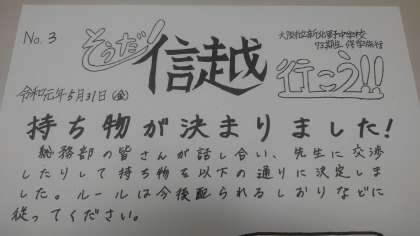 No.3
そうだ!
信越
大阪市立新北野中学校
73期生 修学旅行
行こう!!
令和元年5月31日(金)
持ち物が決まりました!
総務部の皆さんが話し合い、先生に交渉
したりして持ち物を以下の通りに決定しま
した。ルールは今後配られるしおりなどに
従ってください。